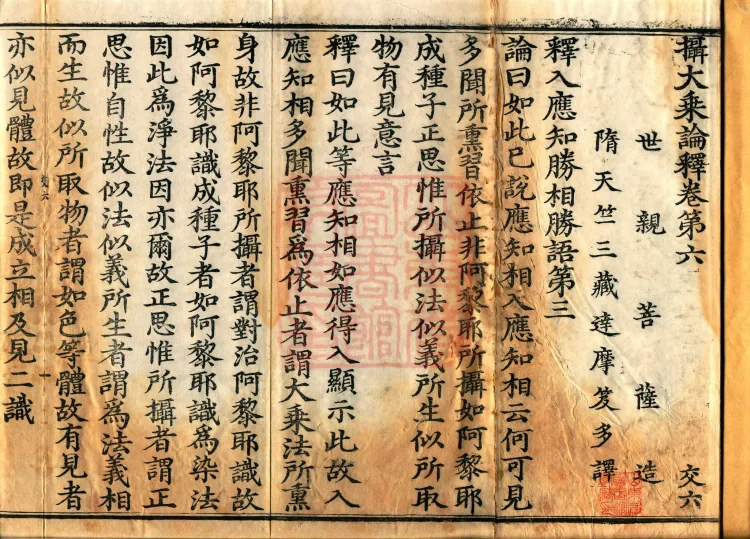 攝大乘論釋卷第六
交六
世親菩薩造
隋天竺三藏達摩笈多譯
釋入應知勝相勝語第三
論曰如此已說應知相入應知相云何可見
多聞所熏習依止非阿黎耶所攝如阿黎耶
成種子正思惟所攝似法似義所生似所取
物有見意言
釋曰如此等應知相如應得入顯示此故入
應知相多聞熏習爲依止者謂大乘法所熏
身故非阿黎耶所攝者謂對治阿黎耶識故
如阿黎耶識成種子者如阿黎耶識爲染法
因此爲淨法因亦爾故正思惟所攝者謂正
思惟自性故似法似義所生者謂爲法義相
而生故似所取物者謂如色等體故有見者
亦似見體故即是成立相及見二識